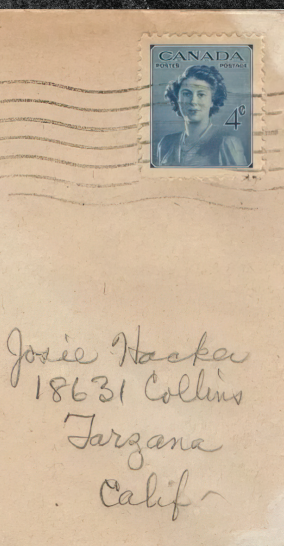 CANADA
POSTES POSTAGE
4¢
Josie Hacker
18631 Collins
Tarzana
Calif